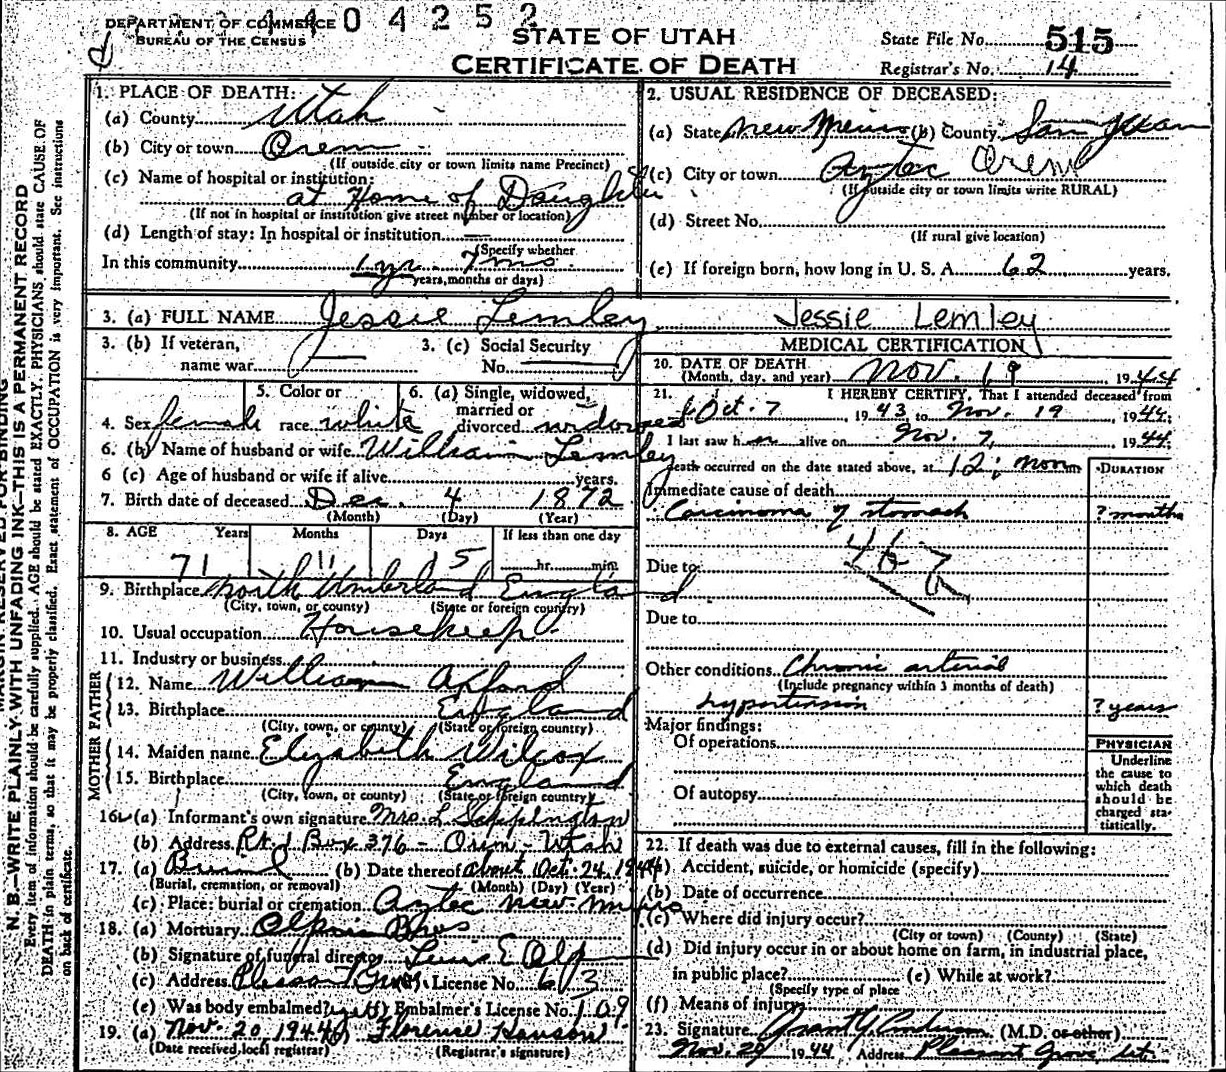 1404252
DEPARTMENT OF COMMERCE
BUREAU OF THE CENSUS
STATE OF UTAH
CERTIFICATE OF DEATH
State File No. 515
Registrar's No. 14
MARGIN RESERVED FOR BINDING
N. B.—WRITE PLAINLY WITH UNFADING INK—THIS IS A PERMANENT RECORD
Every item of information should be carefully supplied. AGE should be stated EXACTLY. PHYSICIANS should state CAUSE OF
DEATH in plain terms, so that it may be properly classified. Exact statement of OCCUPATION is very important. See instructions
on back of certificate.
1. PLACE OF DEATH:
(a) County Utah
(b) City or town Orem
(If outside city or town limits name Precinct)
(c) Name of hospital or institution:
at Home of Daughter
(If not in hospital or institution give street number or location)
(d) Length of stay: In hospital or institution —
(Specify whether
In this community 1 yr. 7 mo.
years, months or days)
2. USUAL RESIDENCE OF DECEASED:
(a) State New Mexico (b) County San Juan
(c) City or town Aztec Orem
(If outside city or town limits write RURAL)
(d) Street No.
(If rural give location)
(e) If foreign born, how long in U. S. A. 62 years.
3. (a) FULL NAME Jessie Lemley Jessie Lemley
3. (b) If veteran,
name war —
3. (c) Social Security
No. —
4. Sex female
5. Color or
race white
6. (a) Single, widowed,
married or
divorced widowed
6. (b) Name of husband or wife William Lemley
6 (c) Age of husband or wife if alive years.
7. Birth date of deceased Dec. 4 1872
(Month) (Day) (Year)
8. AGE Years Months Days If less than one day
71 11 15 hr. min.
9. Birthplace North Umberland England
(City, town, or county) (State or foreign country)
10. Usual occupation Housekeep
11. Industry or business
FATHER
12. Name William Axford
13. Birthplace England
(City, town, or county) (State or foreign country)
MOTHER
14. Maiden name Elizabeth Wilcox
15. Birthplace England
(City, town, or county) (State or foreign country)
16. (a) Informant's own signature Mrs. L Seppington
(b) Address Rt. 1 Box 376 - Orem - Utah
17. (a) Burial (b) Date thereof about Oct. 24. 1944
(Burial, cremation, or removal) (Month) (Day) (Year)
(c) Place: burial or cremation Aztec New Mexico
18. (a) Mortuary Bros
(b) Signature of funeral director
(c) Address Pleasant Grove License No. 613
(e) Was body embalmed? yes (f) Embalmer's License No. 109
19. (a) Nov. 20 1944 (b) Florence Hanson
(Date received local registrar) (Registrar's signature)
MEDICAL CERTIFICATION
20. DATE OF DEATH
(Month, day, and year) Nov. 19, 1944
21. I HEREBY CERTIFY, That I attended deceased from
Oct. 7 1943 to Nov. 19 1944
I last saw h alive on Nov. 7, 1944
Death occurred on the date stated above, at 12: noon
DURATION
Immediate cause of death
Carcinoma of stomach ? months
Due to
46
Due to
Other conditions Chronic arterial
(Include pregnancy within 3 months of death)
hypertension ? years
Major findings:
Of operations
Of autopsy
PHYSICIAN
Underline
the cause to
which death
should be
charged sta-
tistically.
22. If death was due to external causes, fill in the following:
(a) Accident, suicide, or homicide (specify)
(b) Date of occurrence
(c) Where did injury occur?
(City or town) (County) (State)
(d) Did injury occur in or about home on farm, in industrial place,
in public place? (e) While at work?
(Specify type of place
(f) Means of injury
23. Signature Grant Y Anderson (M.D. or other)
Nov. 29 1944 Address Pleasant Grove, Ut.